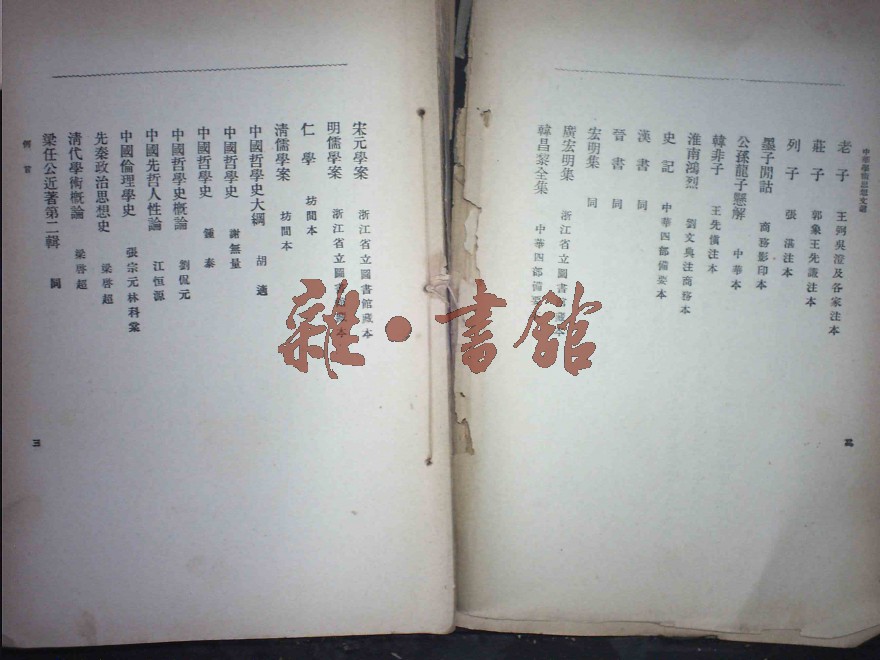 中華學術思想文選
老子 王弼吳澄及各家注本
莊子 郭象王先謙注本
列子 張湛注本
墨子閒詁 商務影印本
公孫龍子懸解 中華本
韓非子 王先愼注本
淮南鴻烈 劉文典注商務本
史記 中華四部備要本
漢書 同
晉書 同
宏明集 同
廣宏明集 浙江省立圖書館藏本
韓昌黎全集 中華四部備要本
宋元學案 浙江省立圖書館藏本
明儒學案 浙江省立圖書館藏本
仁學 坊間本
清儒學案 坊間本
中國哲學史大綱 胡適
中國哲學史 謝無量
中國哲學史 鍾泰
中國哲學史概論 劉侃元
中國先哲人性論 江恒源
中國倫理學史 張宗元林科棠
先秦政治思想史 梁啓超
清代學術概論 梁啓超
梁任公近著第二輯 同
三
雜·書館